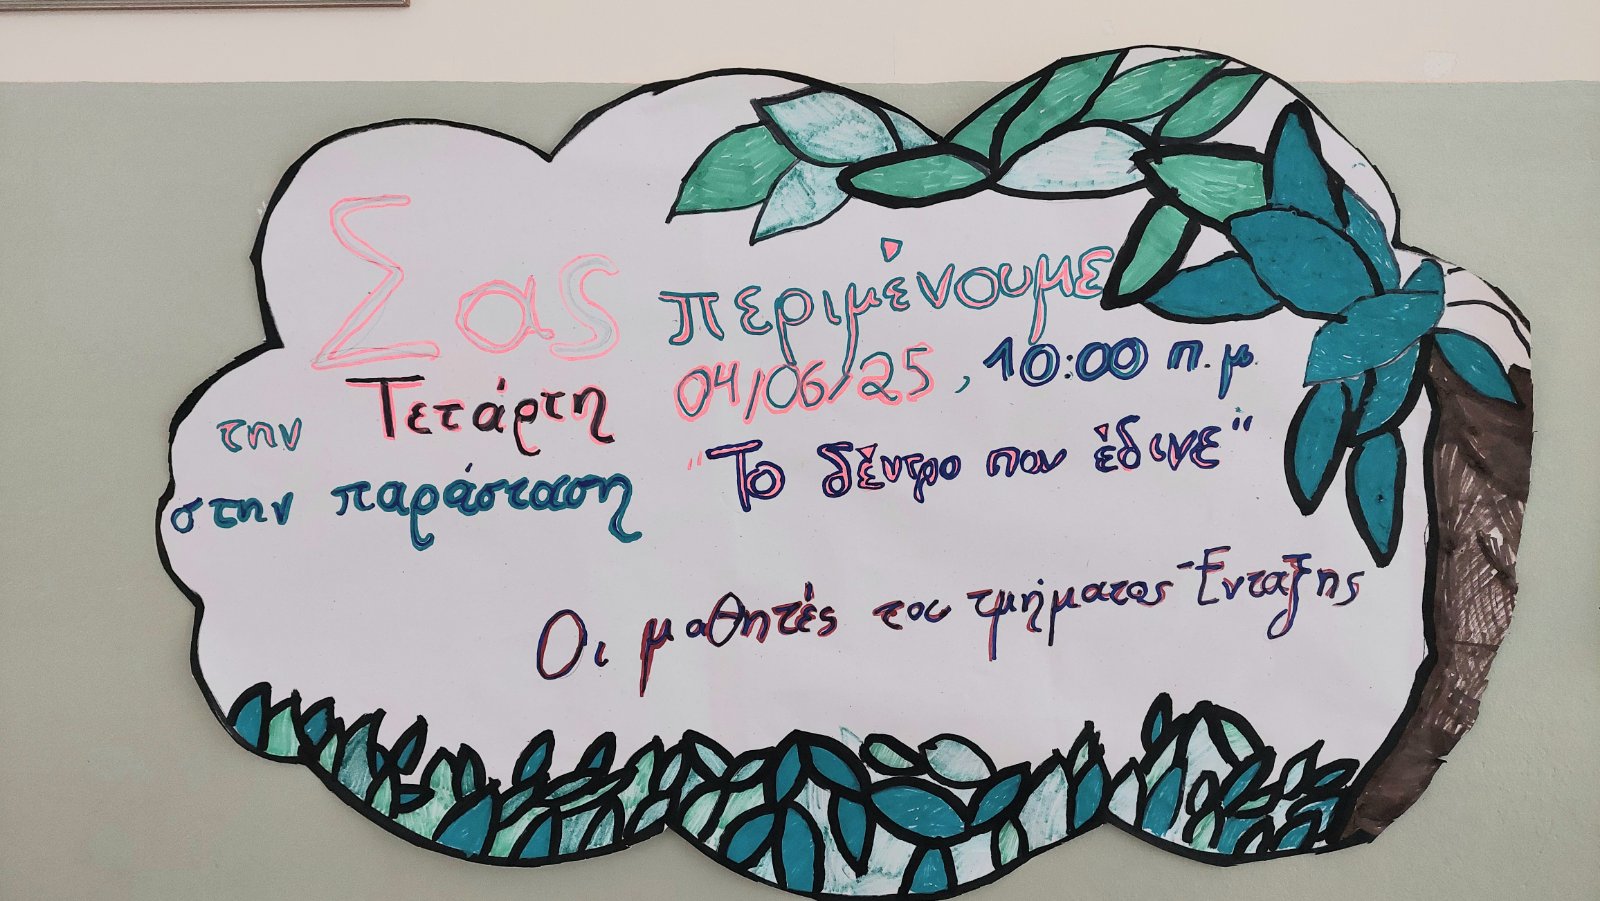 Σας περιμένουμε
την Τετάρτη 04/06/25, 10:00 π.μ.
στην παράσταση "Το δέντρο που έδινε"
Οι μαθητές του τμήματος Ένταξης